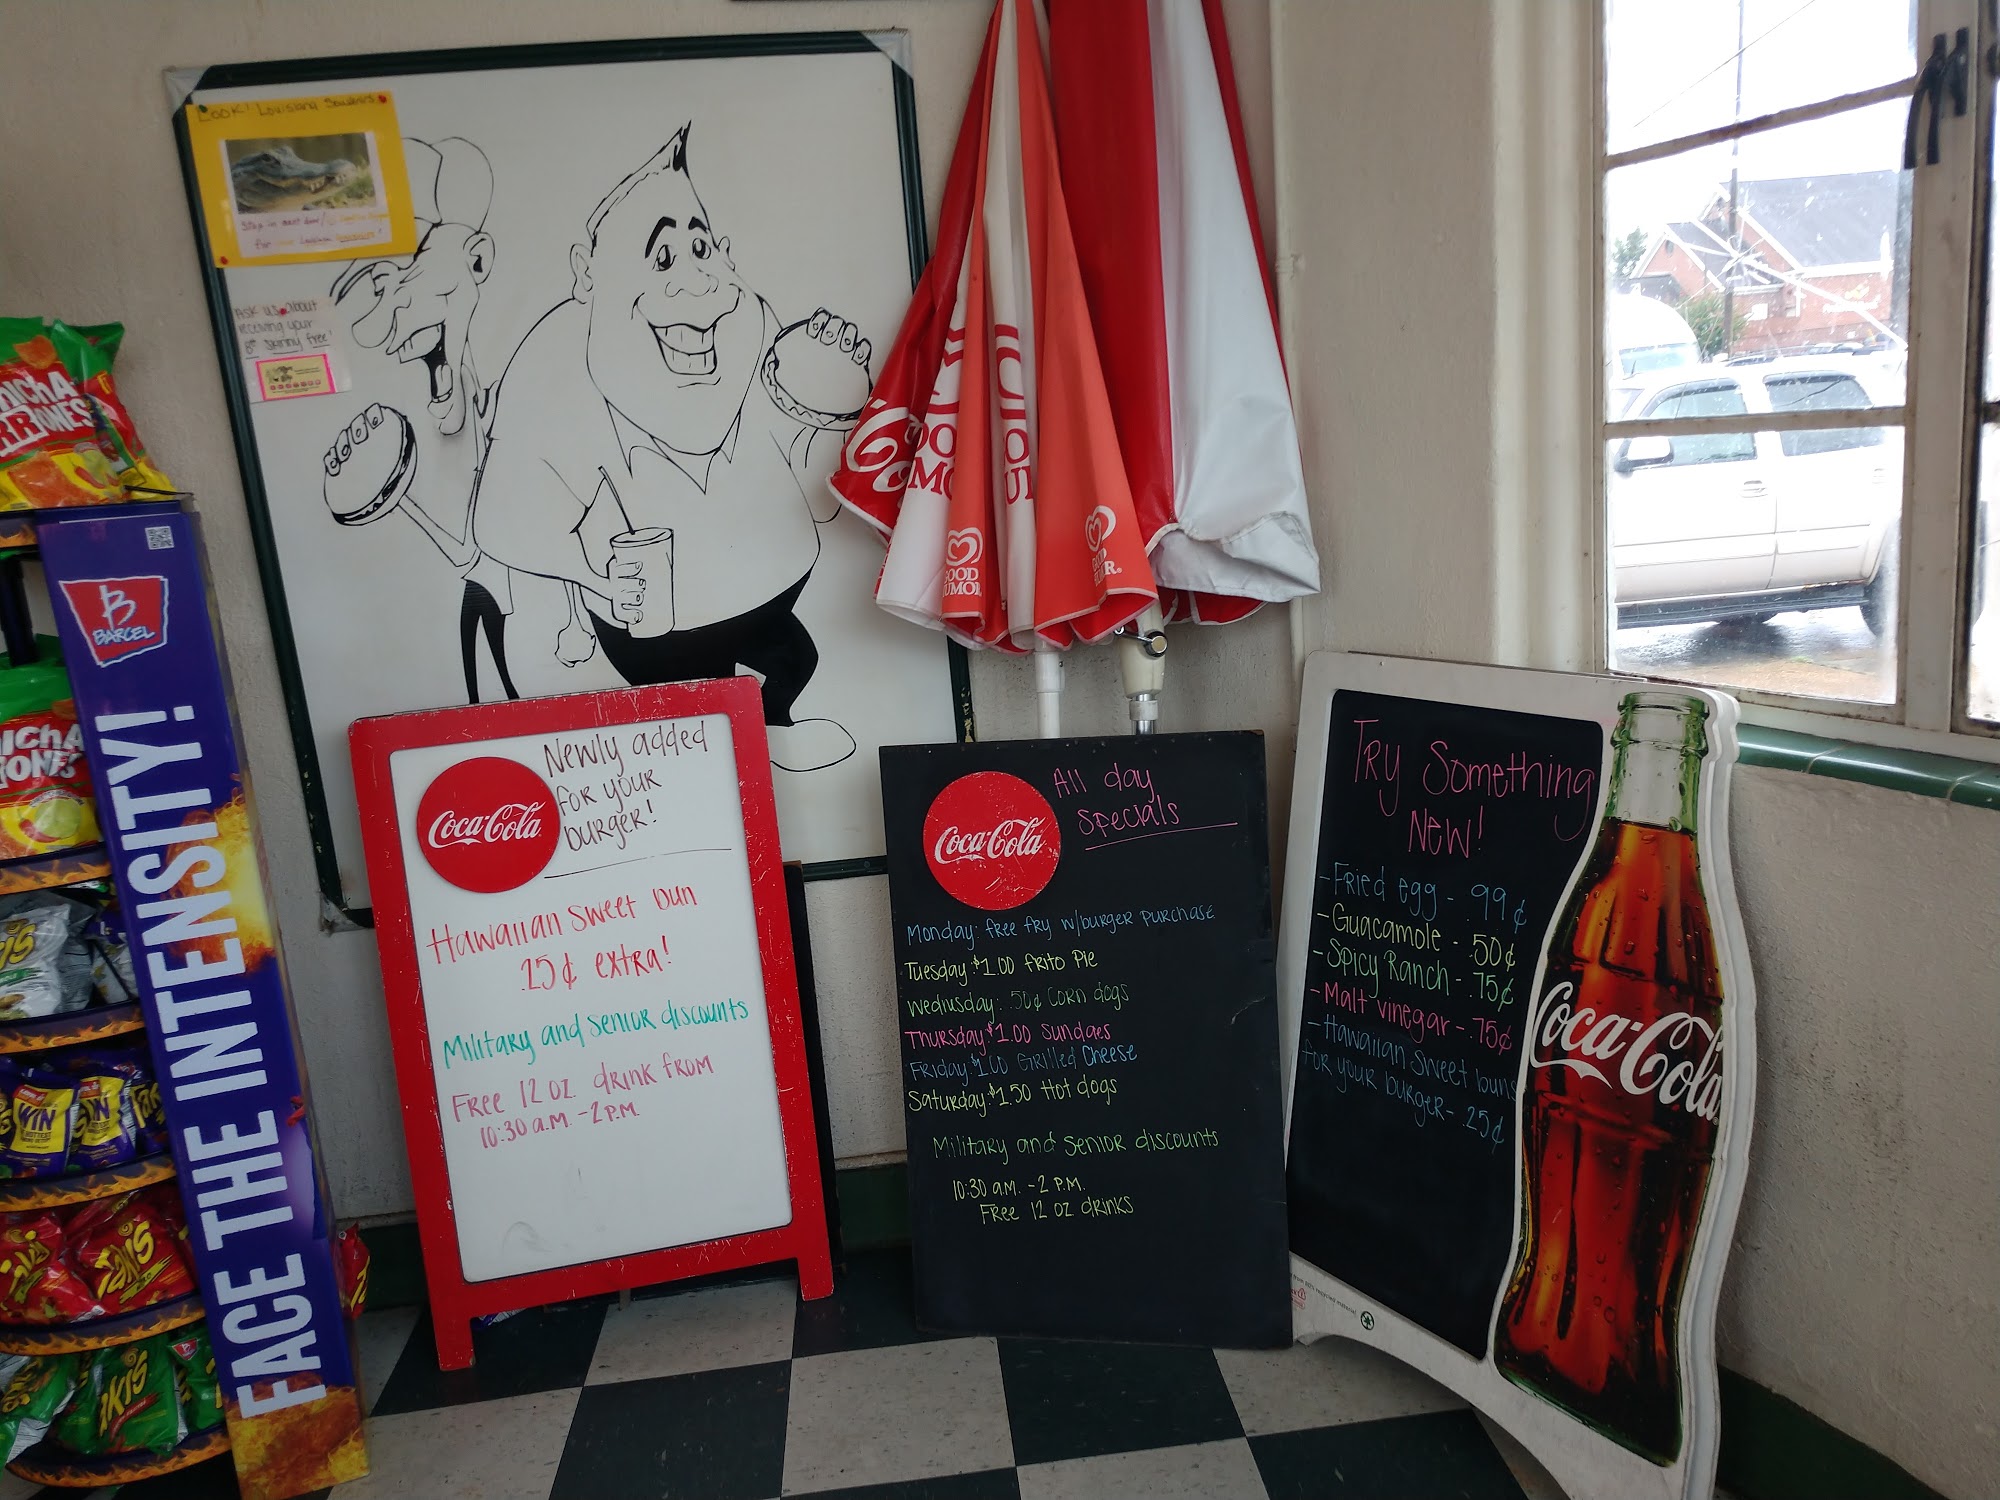 LOOK! Louisiana Souvenirs
Stop in next door/
for Louisiana souvenirs!
Ask us about
receiving your
8th Skinny free!
CHICHA
RRONES
B
BARCEL
FACE THE INTENSITY!
WIN
WIN
TAKIS
TAKIS
GOOD
HUMOR
GOOD
HUMOR.
Coca-Cola
Newly added
for your
burger!
Hawaiian sweet bun
.25¢ extra!
Military and senior discounts
Free 12 oz. drink from
10:30 a.m. - 2 P.M.
Coca-Cola
All day
Specials
Monday: free fry w/burger purchase
Tuesday: $1.00 Frito Pie
Wednesday: .50¢ Corn dogs
Thursday: $1.00 Sundaes
Friday: $1.00 Grilled Cheese
Saturday: $1.50 Hot dogs
Military and senior discounts
10:30 a.m. - 2 P.M.
Free 12 oz drinks
Try Something
New!
- Fried egg - .99¢
- Guacamole - .50¢
- Spicy Ranch - .75¢
- Malt vinegar - .75¢
- Hawaiian Sweet buns
for your burger - .25¢
Coca-Cola